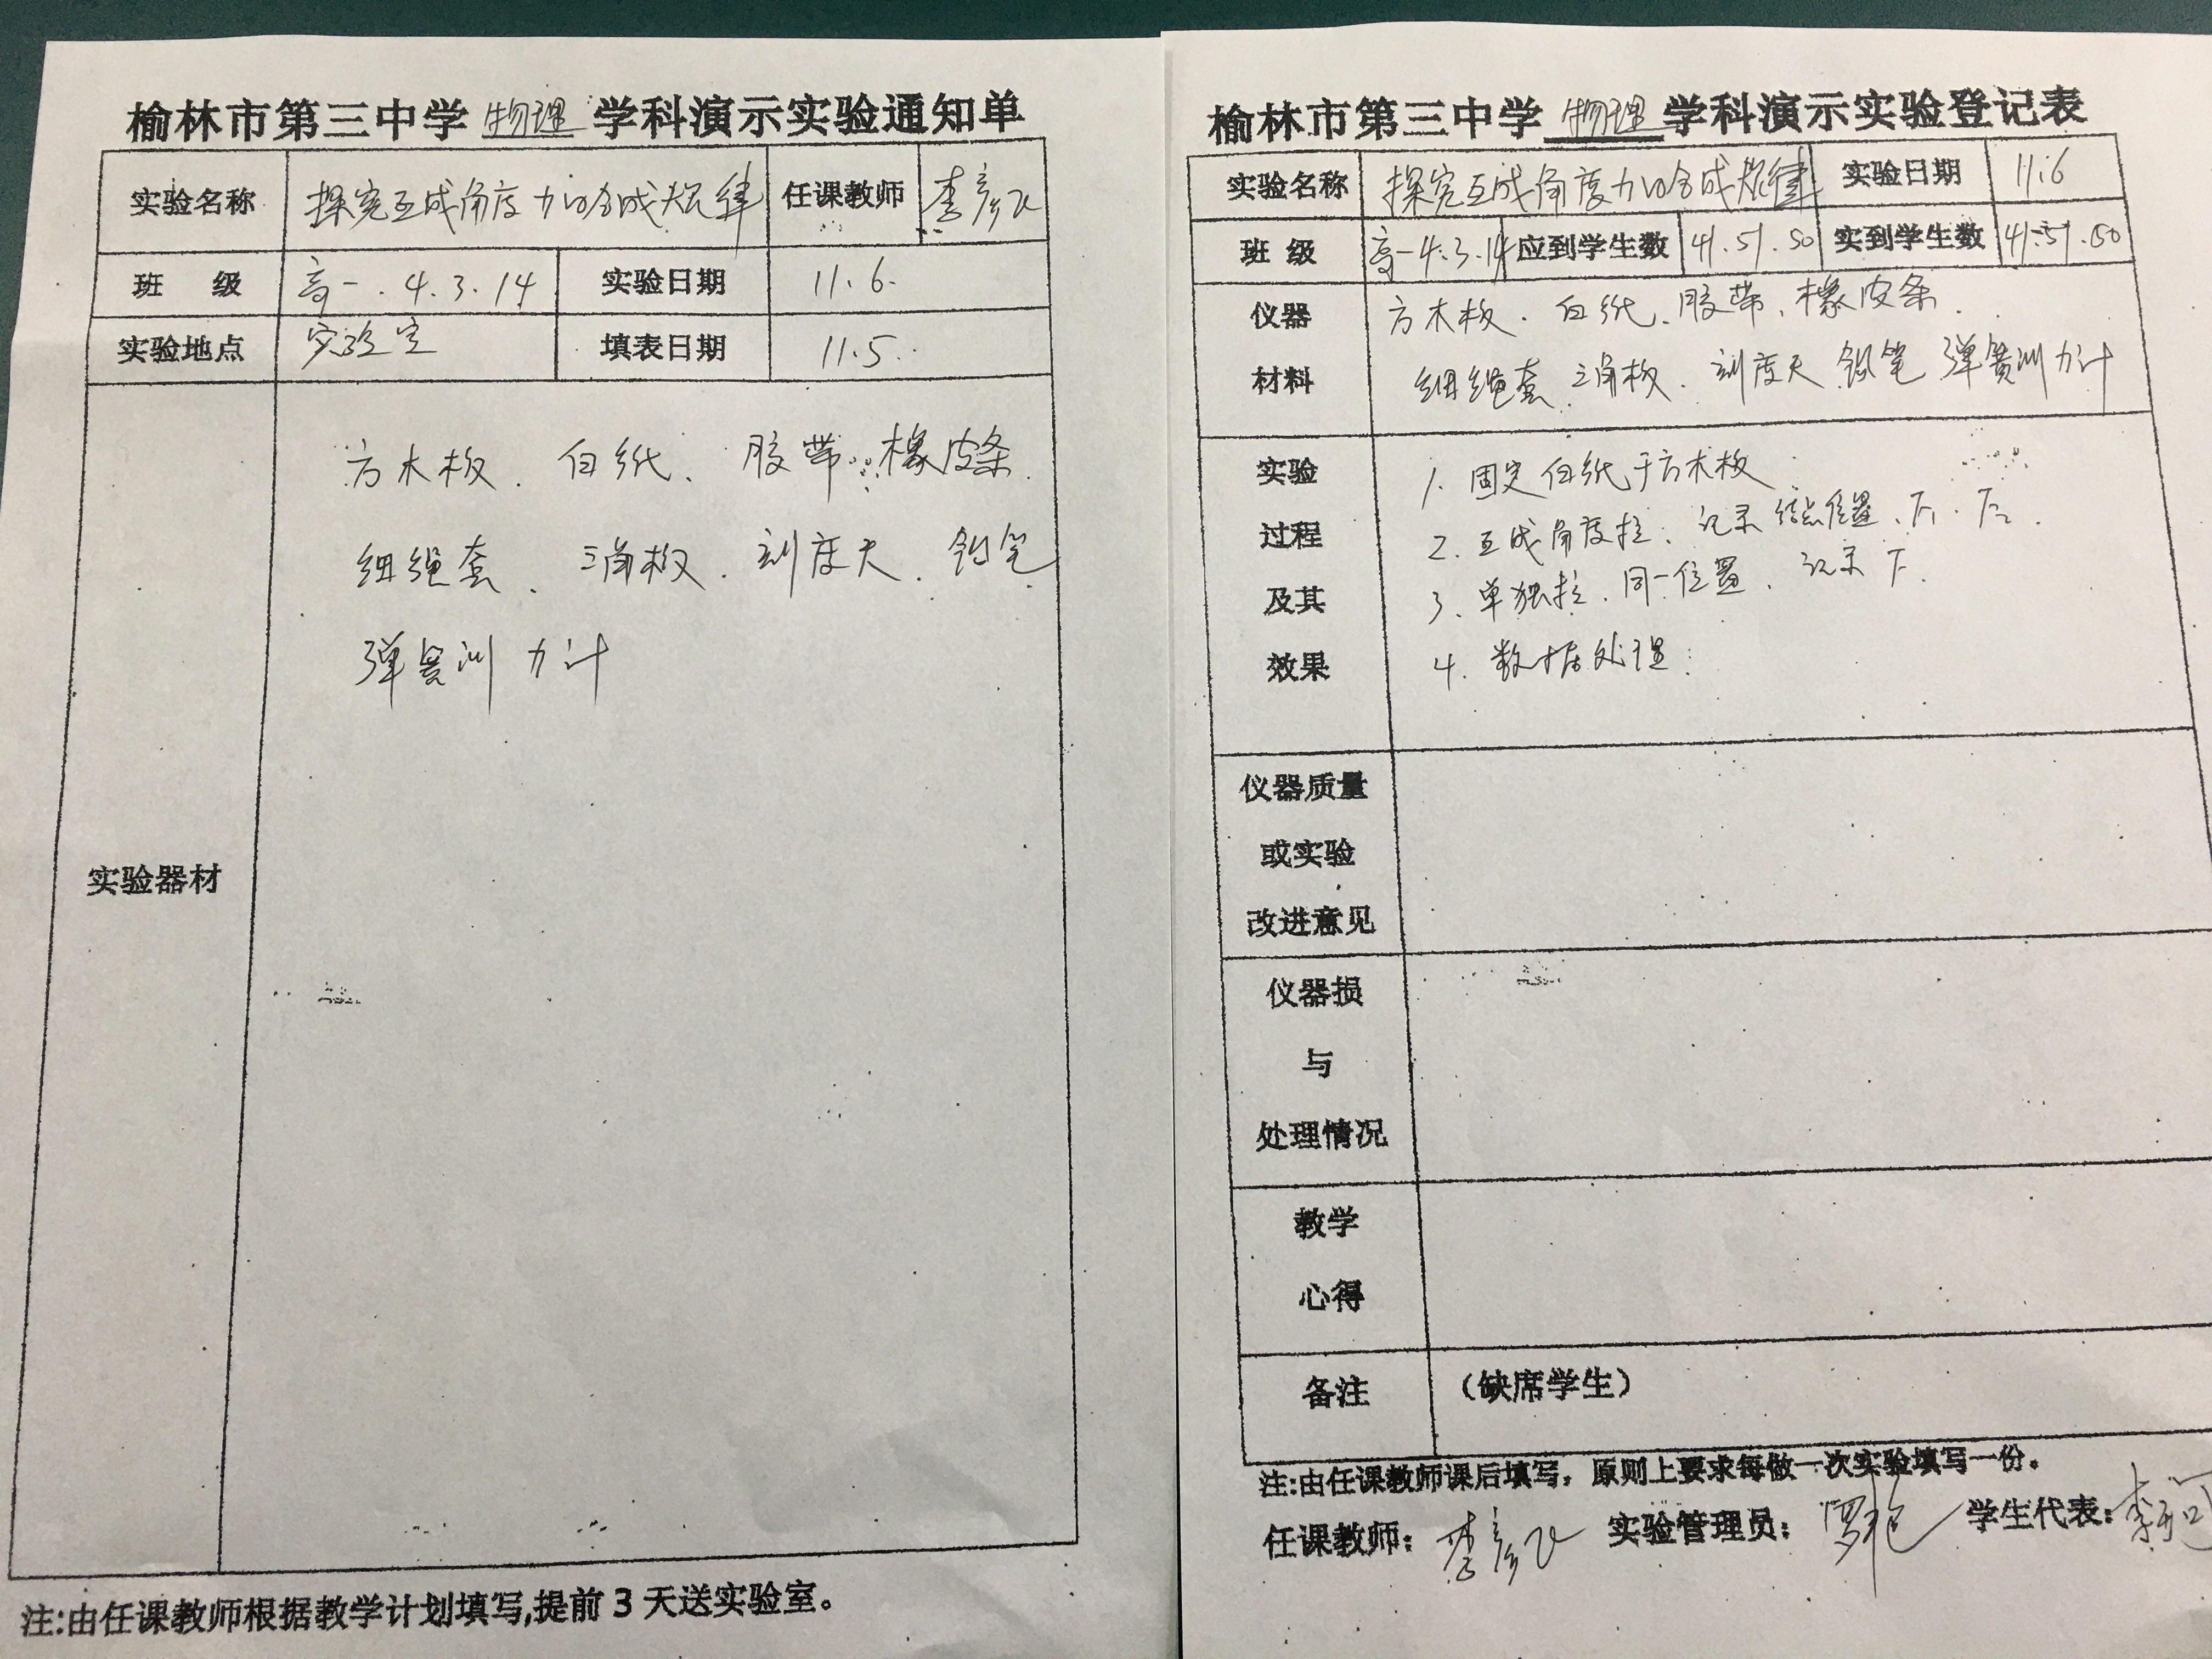 榆林市第三中学 物理 学科演示实验通知单
实验名称 探究互成角度力的合成规律 任课教师 李彦飞
班 级 高一.4.3.14 实验日期 11.6.
实验地点 实验室 填表日期 11.5.
实验器材
方木板、白纸、胶带、橡皮条
细绳套、三角板、刻度尺、铅笔
弹簧测力计
注:由任课教师根据教学计划填写,提前3天送实验室。
榆林市第三中学 物理 学科演示实验登记表
实验名称 探究互成角度力的合成规律 实验日期 11.6
班 级 高一4.3.14 应到学生数 41.51.50 实到学生数 41.51.50
仪器材料
方木板、白纸、胶带、橡皮条
细绳套 三角板、刻度尺 铅笔 弹簧测力计
实验过程及其效果
1. 固定白纸于方木板
2. 互成角度拉、记录结点位置、F1、F2.
3. 单独拉、同一位置、记录F.
4. 数据处理.
仪器质量或实验改进意见
仪器损与处理情况
教学心得
备注 （缺席学生）
注:由任课教师课后填写，原则上要求每做一次实验填写一份。
任课教师: 李彦飞 实验管理员: 学生代表: